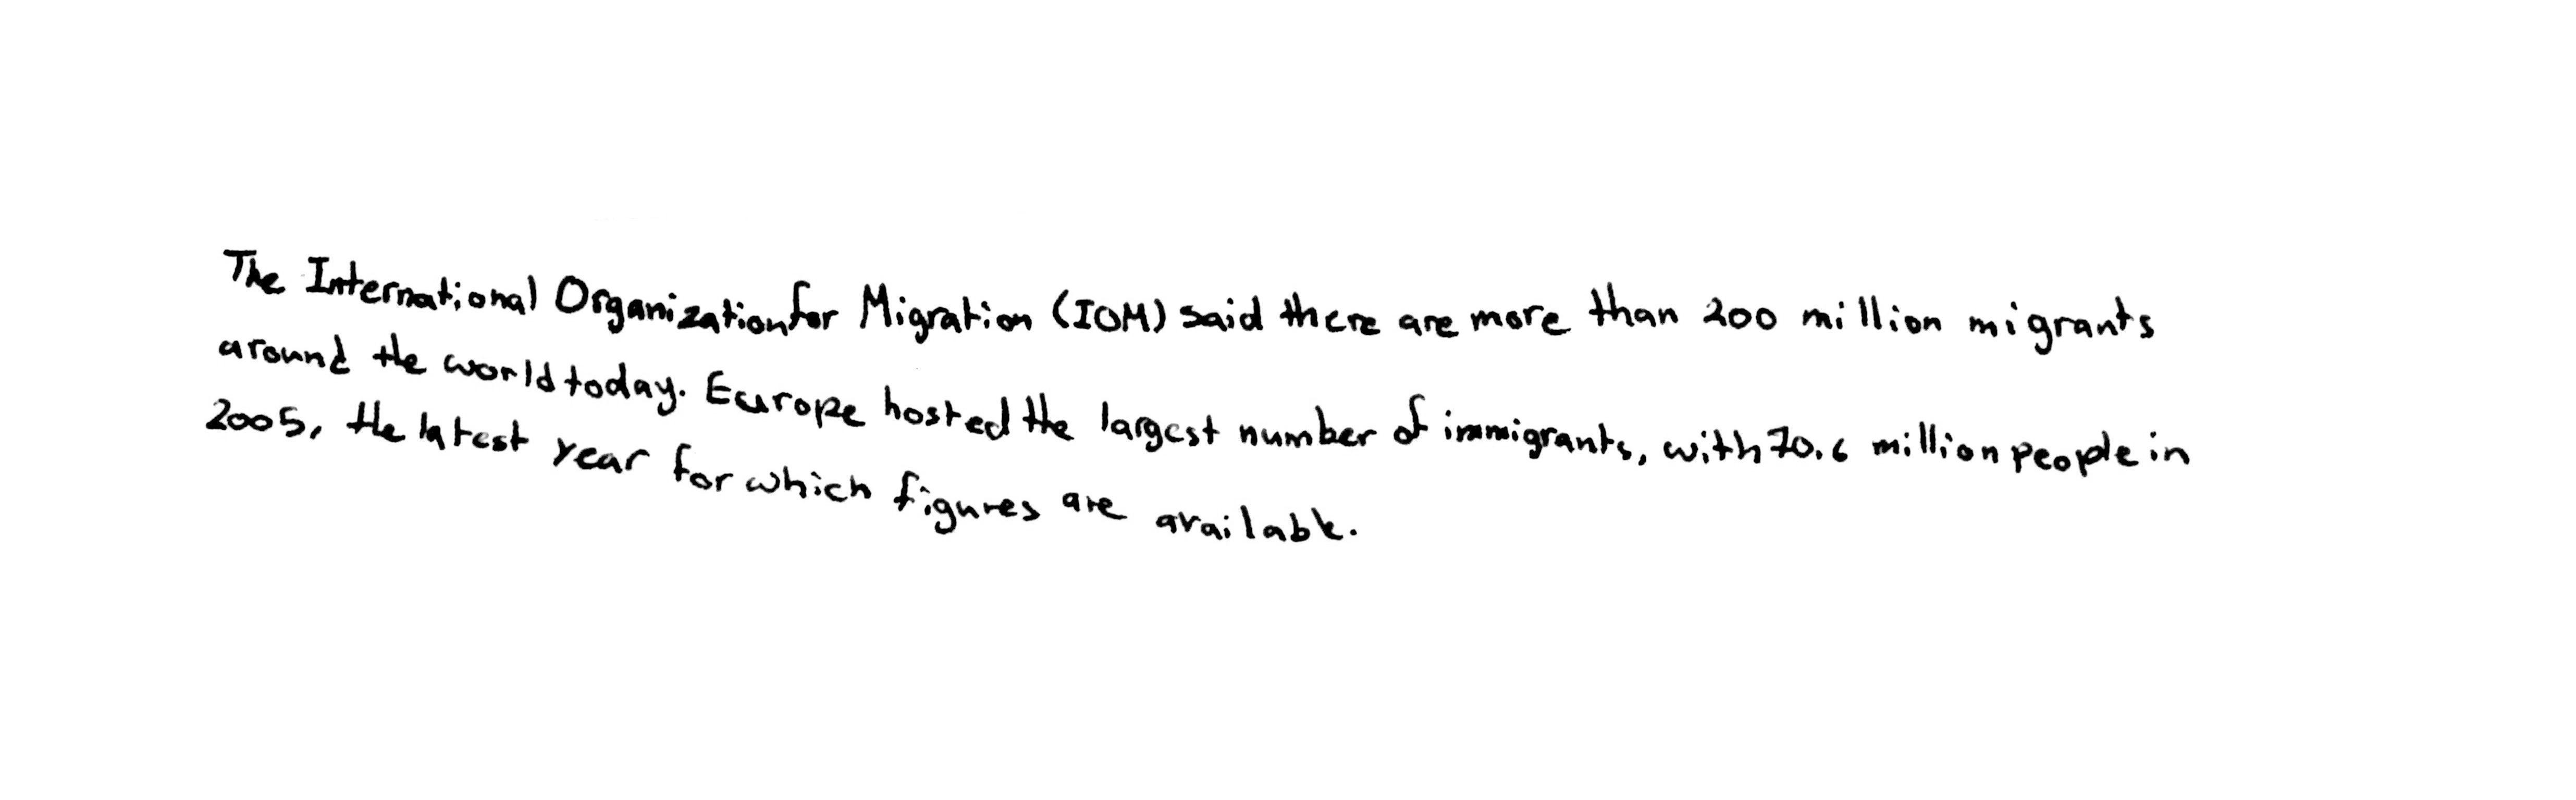 The International Organization for Migration (IOM) said there are more than 200 million migrants
around the world today. Europe hosted the largest number of immigrants, with 70.6 million people in
2005, the latest year for which figures are available.